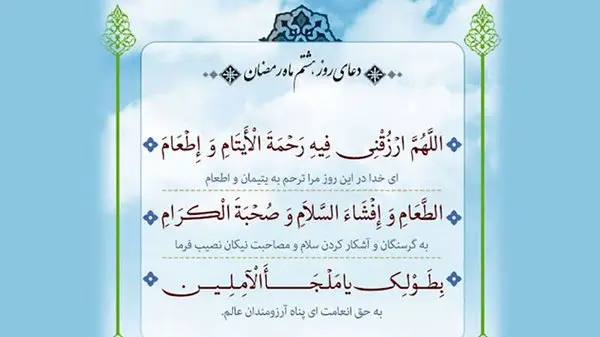 دعای روز هشتم ماه رمضان
اللَّهُمَّ ارْزُقْنِی فِیهِ رَحْمَةَ الْأَیْتَامِ وَ إِطْعَامَ
ای خدا در این روز مرا ترحم به یتیمان و اطعام
الطَّعَامِ وَ إِفْشَاءَ السَّلاَمِ وَ صُحْبَةَ الْكَرَامِ
به گرسنگان و آشکار کردن سلام و مصاحبت نیکان نصیب فرما
بِطَوْلِکَ یا مَلْجَأَ الْآمِلِینَ
به حق انعامت ای پناه آرزومندان عالم.